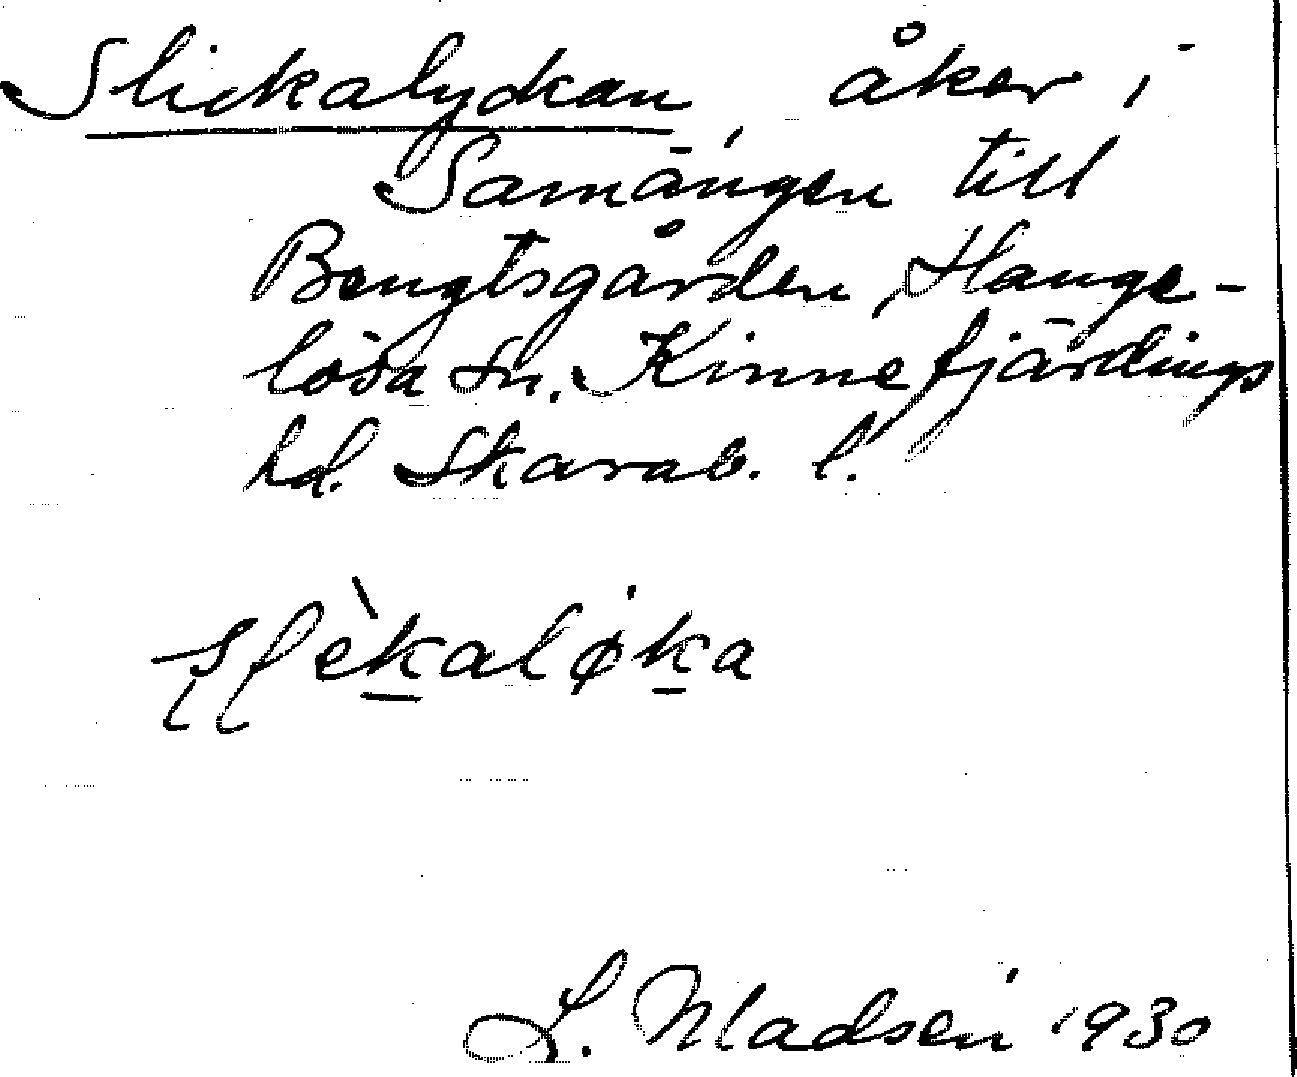 Slickalyckan, åker i
Samängen till
Bengtsgården, Hange-
lösa sn. Kinnefjärdings
hd. Skarab. l.
L. Madsen 1930